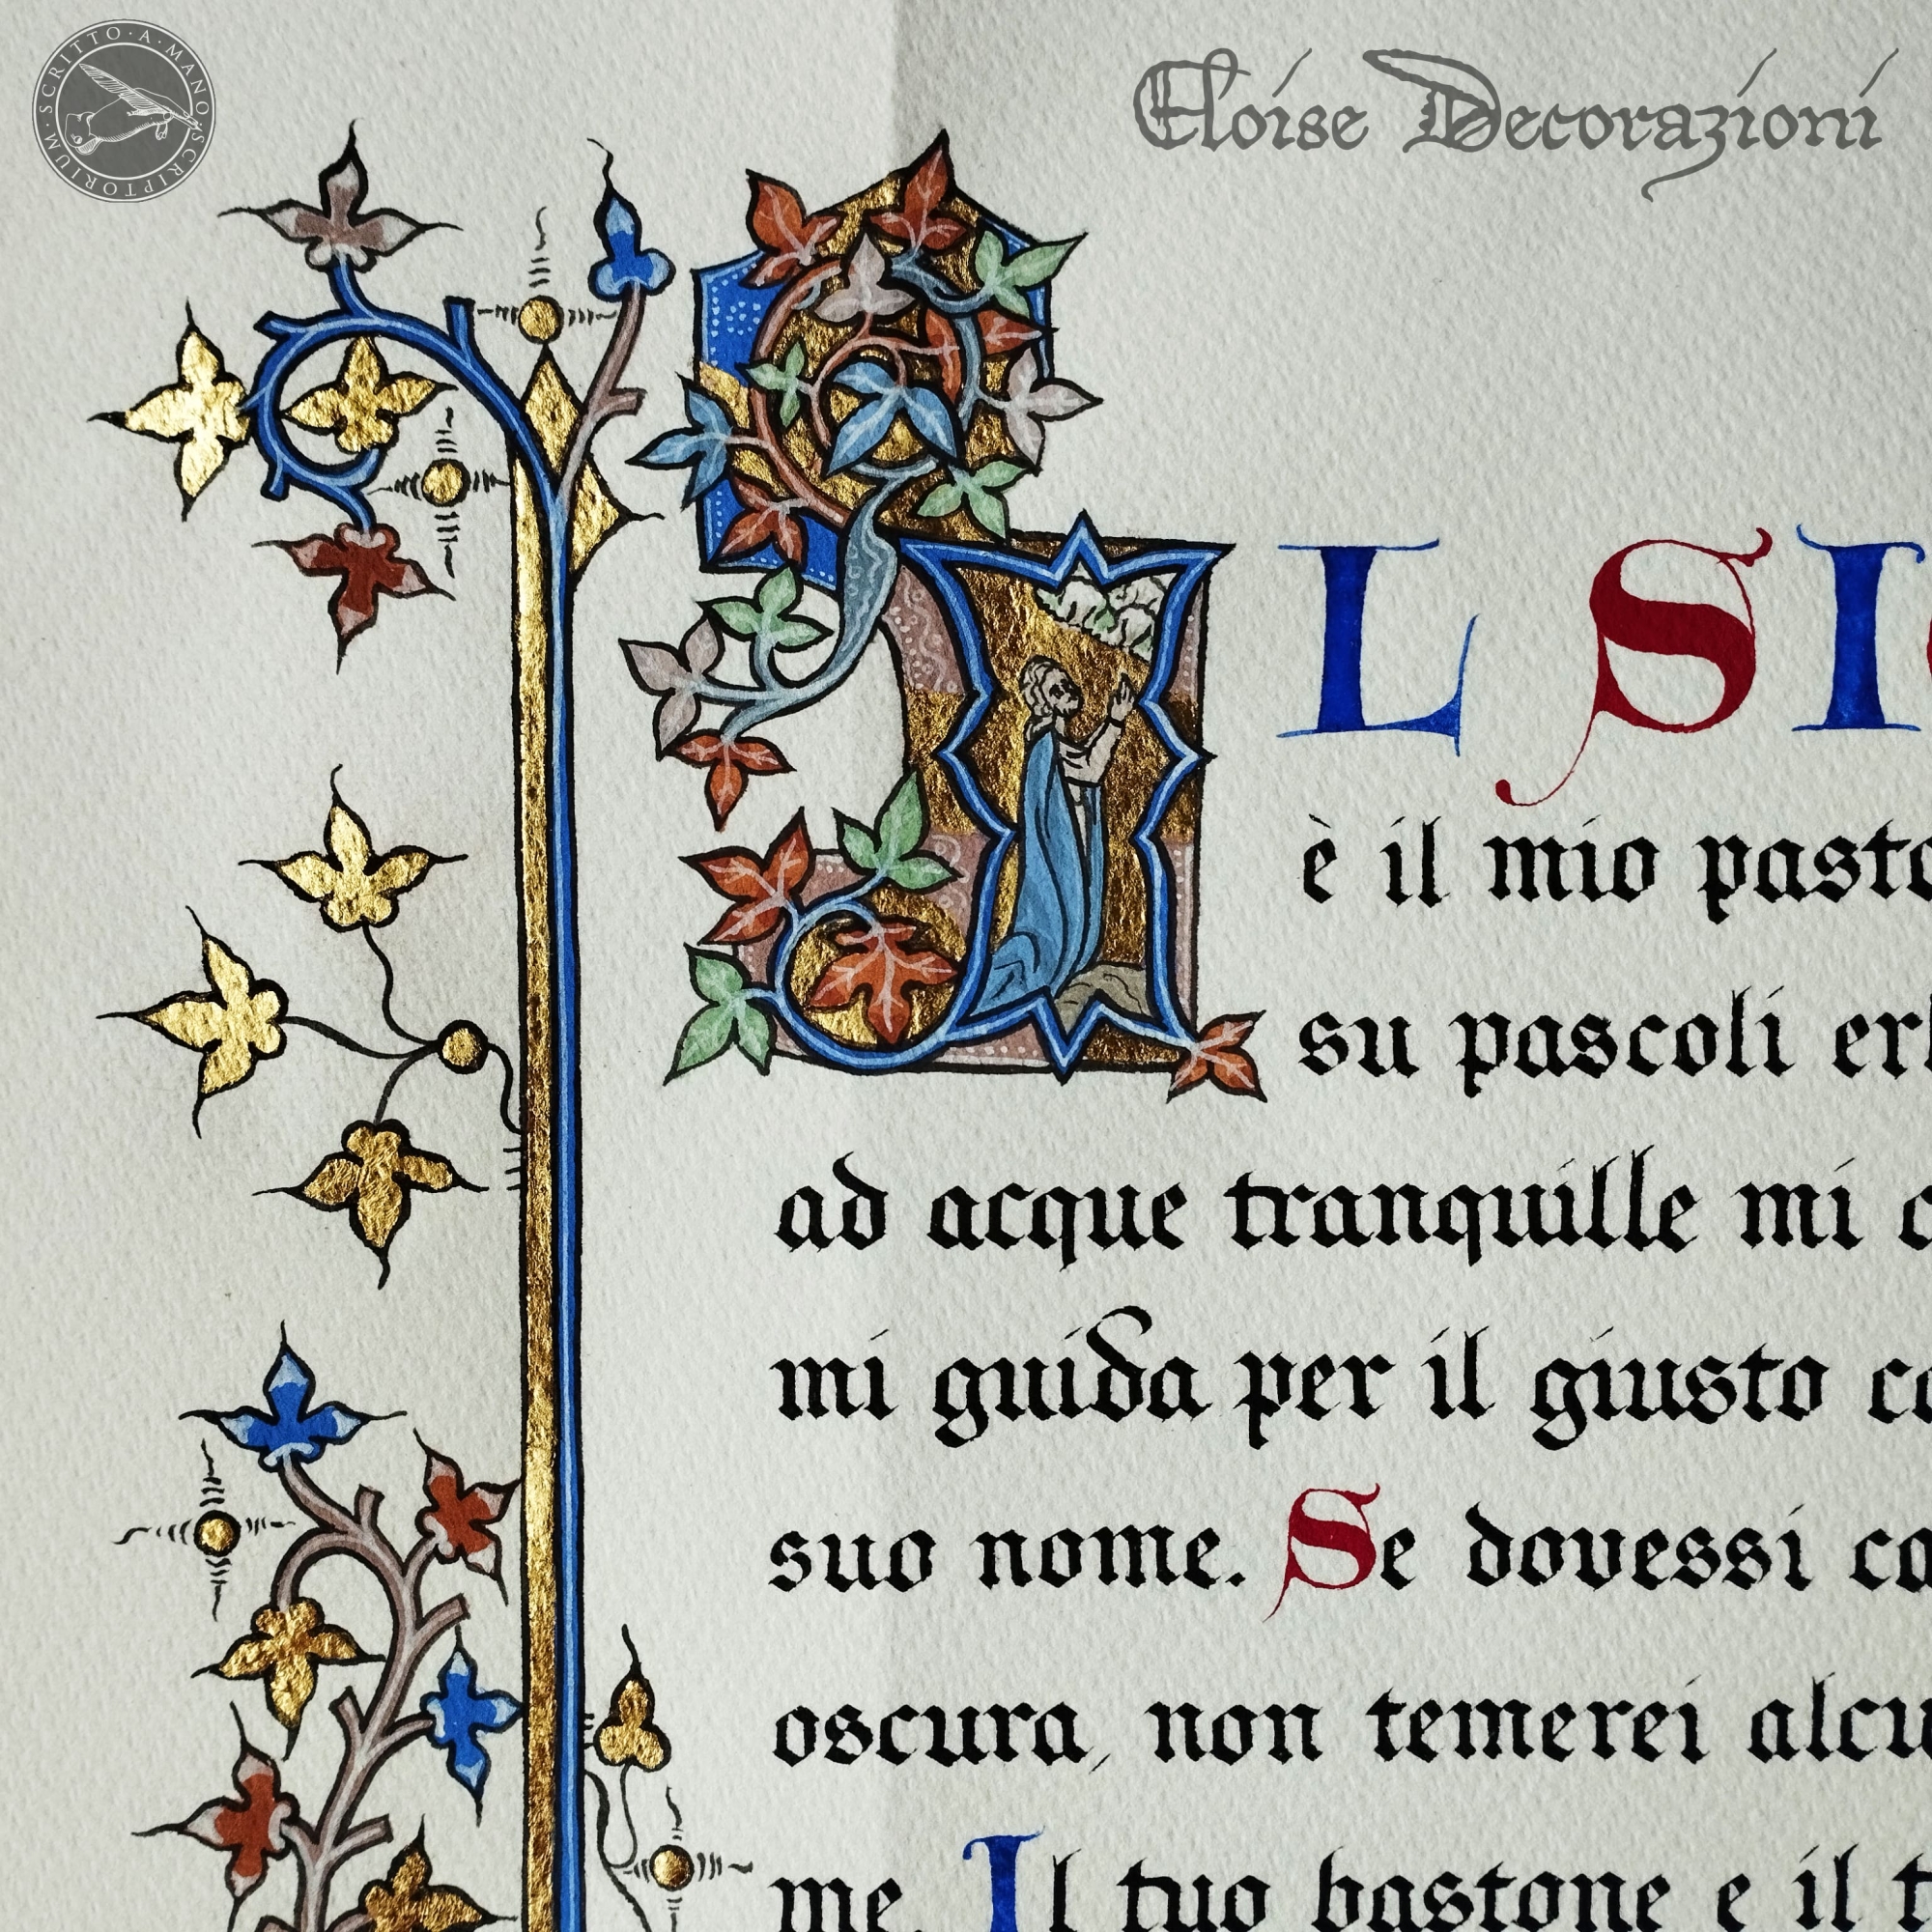 SCRITTO·A·MANO·SCRIPTORIUM
Eloise Decorazioni
IL SI
è il mio
su pascoli
ad acque tranquille mi
mi guida per il giusto
suo nome. Se dovessi
oscura, non temerei
me. Il tuo bastone e il